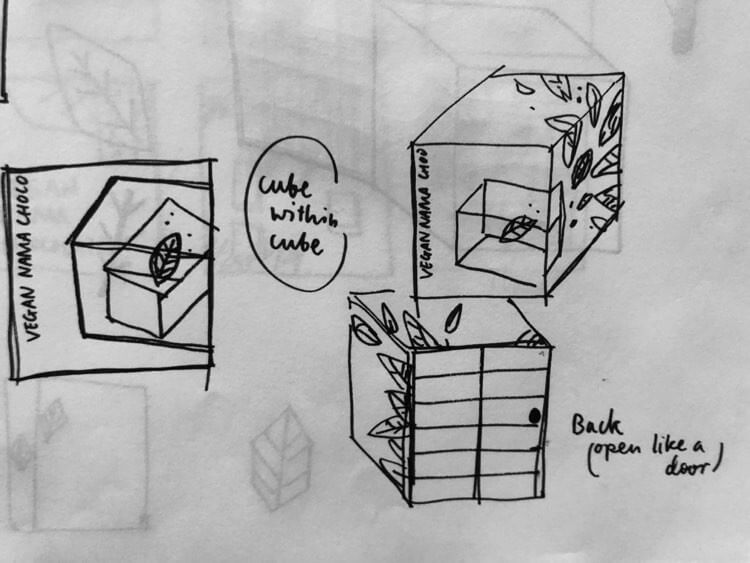 VEGAN NAMA CHOCO
cube
within
cube
VEGAN NAMA CHOCO
Back
(open like a
door)